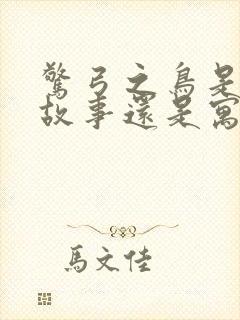 驚弓之鳥是
故事還是寓
馬文佳